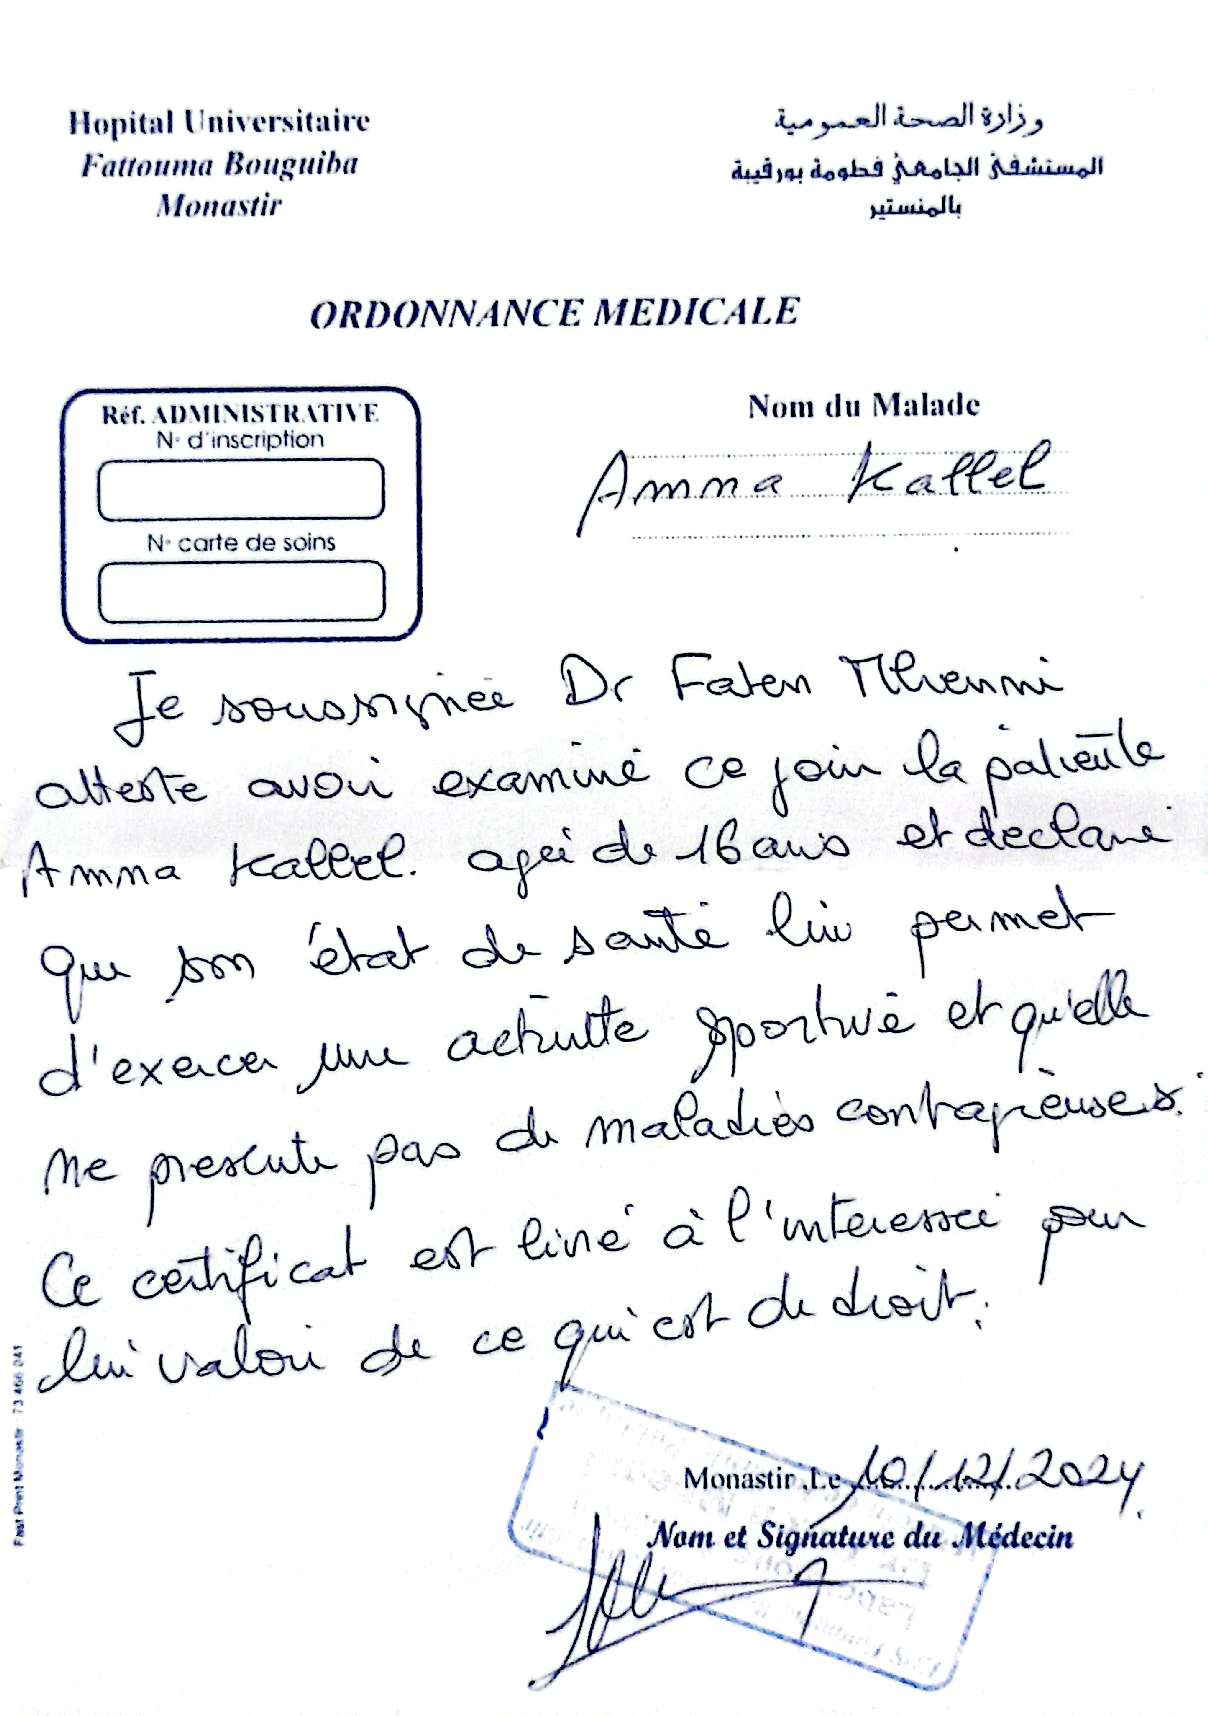 Hopital Universitaire
Fattouma Bouguiba
Monastir
وزارة الصحة العمومية
المستشفى الجامعي فطومة بورقيبة
بالمنستير
ORDONNANCE MEDICALE
Réf. ADMINISTRATIVE
N° d'inscription
N° carte de soins
Nom du Malade
Amna Kallel
Je soussignée Dr Faten Mhenni
atteste avoir examiné ce jour la patiente
Amna Kallel. agée de 16 ans et déclare
que son état de santé lui permet
d'exercer une activité sportive et qu'elle
ne présente pas de maladies contagieuses.
Ce certificat est livré à l'interessée pour
lui valoir de ce qui est de droit.
Monastir ,Le 10/12/2024
Nom et Signature du Médecin
Fast Print Monastir 73 466 041